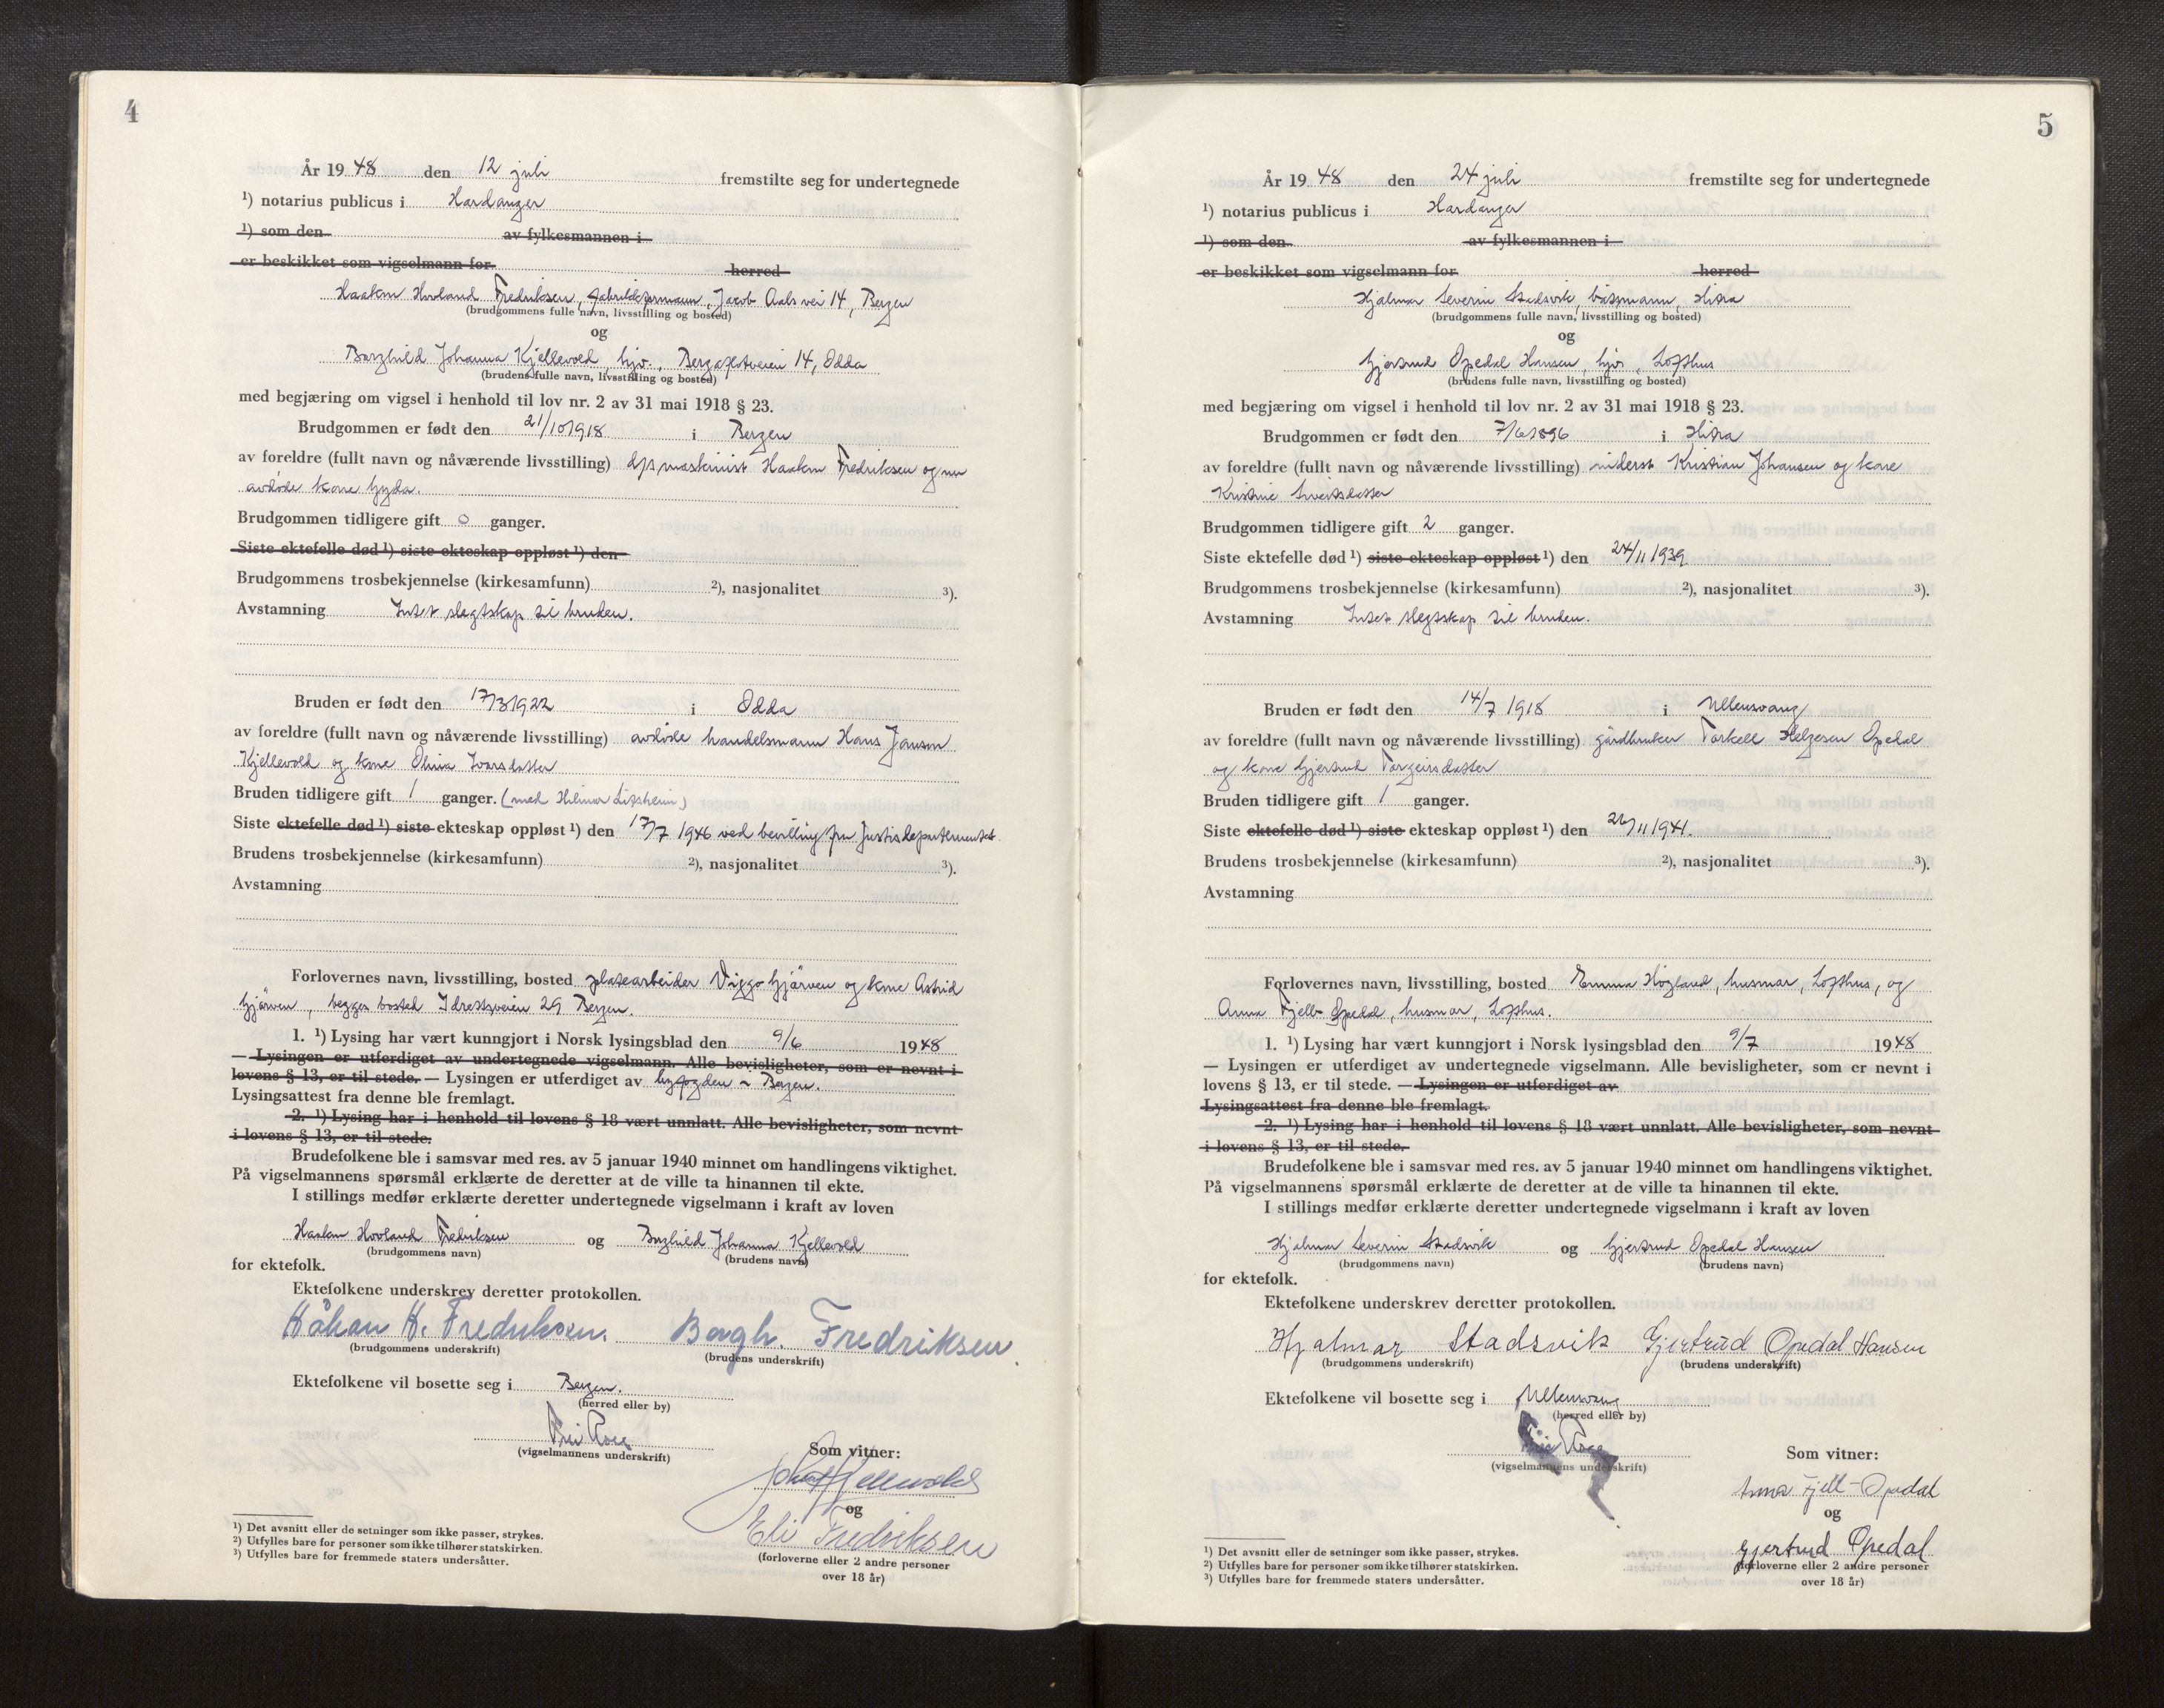 4
År 19 48 den 12 juli fremstilte seg for undertegnede
¹) notarius publicus i Hardanger
¹) som den av fylkesmannen i
er beskikket som vigselmann for herred
Haakon Hovland Fredriksen, Jacob Aals vei 14, Bergen
(brudgommens fulle navn, livsstilling og bosted)
og
Borghild Johanna Kjellevold, hjv., 14, Odda
(brudens fulle navn, livsstilling og bosted)
med begjæring om vigsel i henhold til lov nr. 2 av 31 mai 1918 § 23.
Brudgommen er født den 21/10 1918 i Bergen
av foreldre (fullt navn og nåværende livsstilling) d/s maskinist Haakon Fredriksen og nu
avdøde kone Gyda.
Brudgommen tidligere gift 0 ganger.
Siste ektefelle død ¹) siste ekteskap oppløst ¹) den
Brudgommens trosbekjennelse (kirkesamfunn) ²), nasjonalitet ³).
Avstamning Intet slegtskap til bruden.
Bruden er født den 17/3 1922 i Odda
av foreldre (fullt navn og nåværende livsstilling) avdøde handelsmann Hans Jansen
Kjellevold og kone Olina Ivarsdatter
Bruden tidligere gift 1 ganger. (med Hilmar Litsheim)
Siste ektefelle død ¹) siste ekteskap oppløst ¹) den 17/7 1946 ved bevilling fra Justisdepartementet
Brudens trosbekjennelse (kirkesamfunn) ²), nasjonalitet ³).
Avstamning
Forlovernes navn, livsstilling, bosted platearbeider Viggo Gjärven og kone Astrid
Gjärven, begges bosted Idrettsveien 29 Bergen.
1. ¹) Lysing har vært kunngjort i Norsk lysingsblad den 9/6 1948
— Lysingen er utferdiget av undertegnede vigselmann. Alle bevisligheter, som er nevnt i
lovens § 13, er til stede. — Lysingen er utferdiget av byfogden i Bergen.
Lysingsattest fra denne ble fremlagt.
2. ¹) Lysing har i henhold til lovens § 18 vært unnlatt. Alle bevisligheter, som nevnt
i lovens § 13, er til stede.
Brudefolkene ble i samsvar med res. av 5 januar 1940 minnet om handlingens viktighet.
På vigselmannens spørsmål erklærte de deretter at de ville ta hinannen til ekte.
I stillings medfør erklærte deretter undertegnede vigselmann i kraft av loven
Haakon Hovland Fredriksen og Borghild Johanna Kjellevold
(brudgommens navn) (brudens navn)
for ektefolk.
Ektefolkene underskrev deretter protokollen.
Håkon H. Fredriksen. Borgh. Fredriksen.
(brudgommens underskrift) (brudens underskrift)
Ektefolkene vil bosette seg i Bergen.
(herred eller by)
(vigselmannens underskrift)
Som vitner:
Kjellevold
og
Eli Fredriksen
(forloverne eller 2 andre personer
over 18 år)
¹) Det avsnitt eller de setninger som ikke passer, strykes.
²) Utfylles bare for personer som ikke tilhører statskirken.
³) Utfylles bare for fremmede staters undersåtter.
5
År 19 48 den 24 juli fremstilte seg for undertegnede
¹) notarius publicus i Hardanger
¹) som den av fylkesmannen i
er beskikket som vigselmann for herred
Hjalmar Severin Stadsvik, båtsmann, Hitra
(brudgommens fulle navn, livsstilling og bosted)
og
Gjertrud Opedal Hansen, hjv., Lofthus
(brudens fulle navn, livsstilling og bosted)
med begjæring om vigsel i henhold til lov nr. 2 av 31 mai 1918 § 23.
Brudgommen er født den 7/6 1896 i Hitra
av foreldre (fullt navn og nåværende livsstilling) inderst Kristian Johansen og kone
Kristine
Brudgommen tidligere gift 2 ganger.
Siste ektefelle død ¹) siste ekteskap oppløst ¹) den 24/11 1939
Brudgommens trosbekjennelse (kirkesamfunn) ²), nasjonalitet ³).
Avstamning Intet slegtskap til bruden.
Bruden er født den 14/7 1918 i Ullensvang
av foreldre (fullt navn og nåværende livsstilling) gårdbruker Torkell Helgesen Opedal
og kone Gjertrud Torgeirsdatter
Bruden tidligere gift 1 ganger.
Siste ektefelle død ¹) siste ekteskap oppløst ¹) den 26/11 1941.
Brudens trosbekjennelse (kirkesamfunn) ²), nasjonalitet ³).
Avstamning
Forlovernes navn, livsstilling, bosted Emma Hogland, husmor, Lofthus, og
Anna Fjell-Opedal, husmor, Lofthus.
1. ¹) Lysing har vært kunngjort i Norsk lysingsblad den 9/7 1948
— Lysingen er utferdiget av undertegnede vigselmann. Alle bevisligheter, som er nevnt i
lovens § 13, er til stede. — Lysingen er utferdiget av
Lysingsattest fra denne ble fremlagt.
2. ¹) Lysing har i henhold til lovens § 18 vært unnlatt. Alle bevisligheter, som nevnt
i lovens § 13, er til stede.
Brudefolkene ble i samsvar med res. av 5 januar 1940 minnet om handlingens viktighet.
På vigselmannens spørsmål erklærte de deretter at de ville ta hinannen til ekte.
I stillings medfør erklærte deretter undertegnede vigselmann i kraft av loven
Hjalmar Severin Stadsvik og Gjertrud Opedal Hansen
(brudgommens navn) (brudens navn)
for ektefolk.
Ektefolkene underskrev deretter protokollen.
Hjalmar Stadsvik Gjertrud Opedal Hansen
(brudgommens underskrift) (brudens underskrift)
Ektefolkene vil bosette seg i Ullensvang
(herred eller by)
(vigselmannens underskrift)
Som vitner:
Anna Fjell-Opedal
og
Gjertrud Opedal
(forloverne eller 2 andre personer
over 18 år)
¹) Det avsnitt eller de setninger som ikke passer, strykes.
²) Utfylles bare for personer som ikke tilhører statskirken.
³) Utfylles bare for fremmede staters undersåtter.